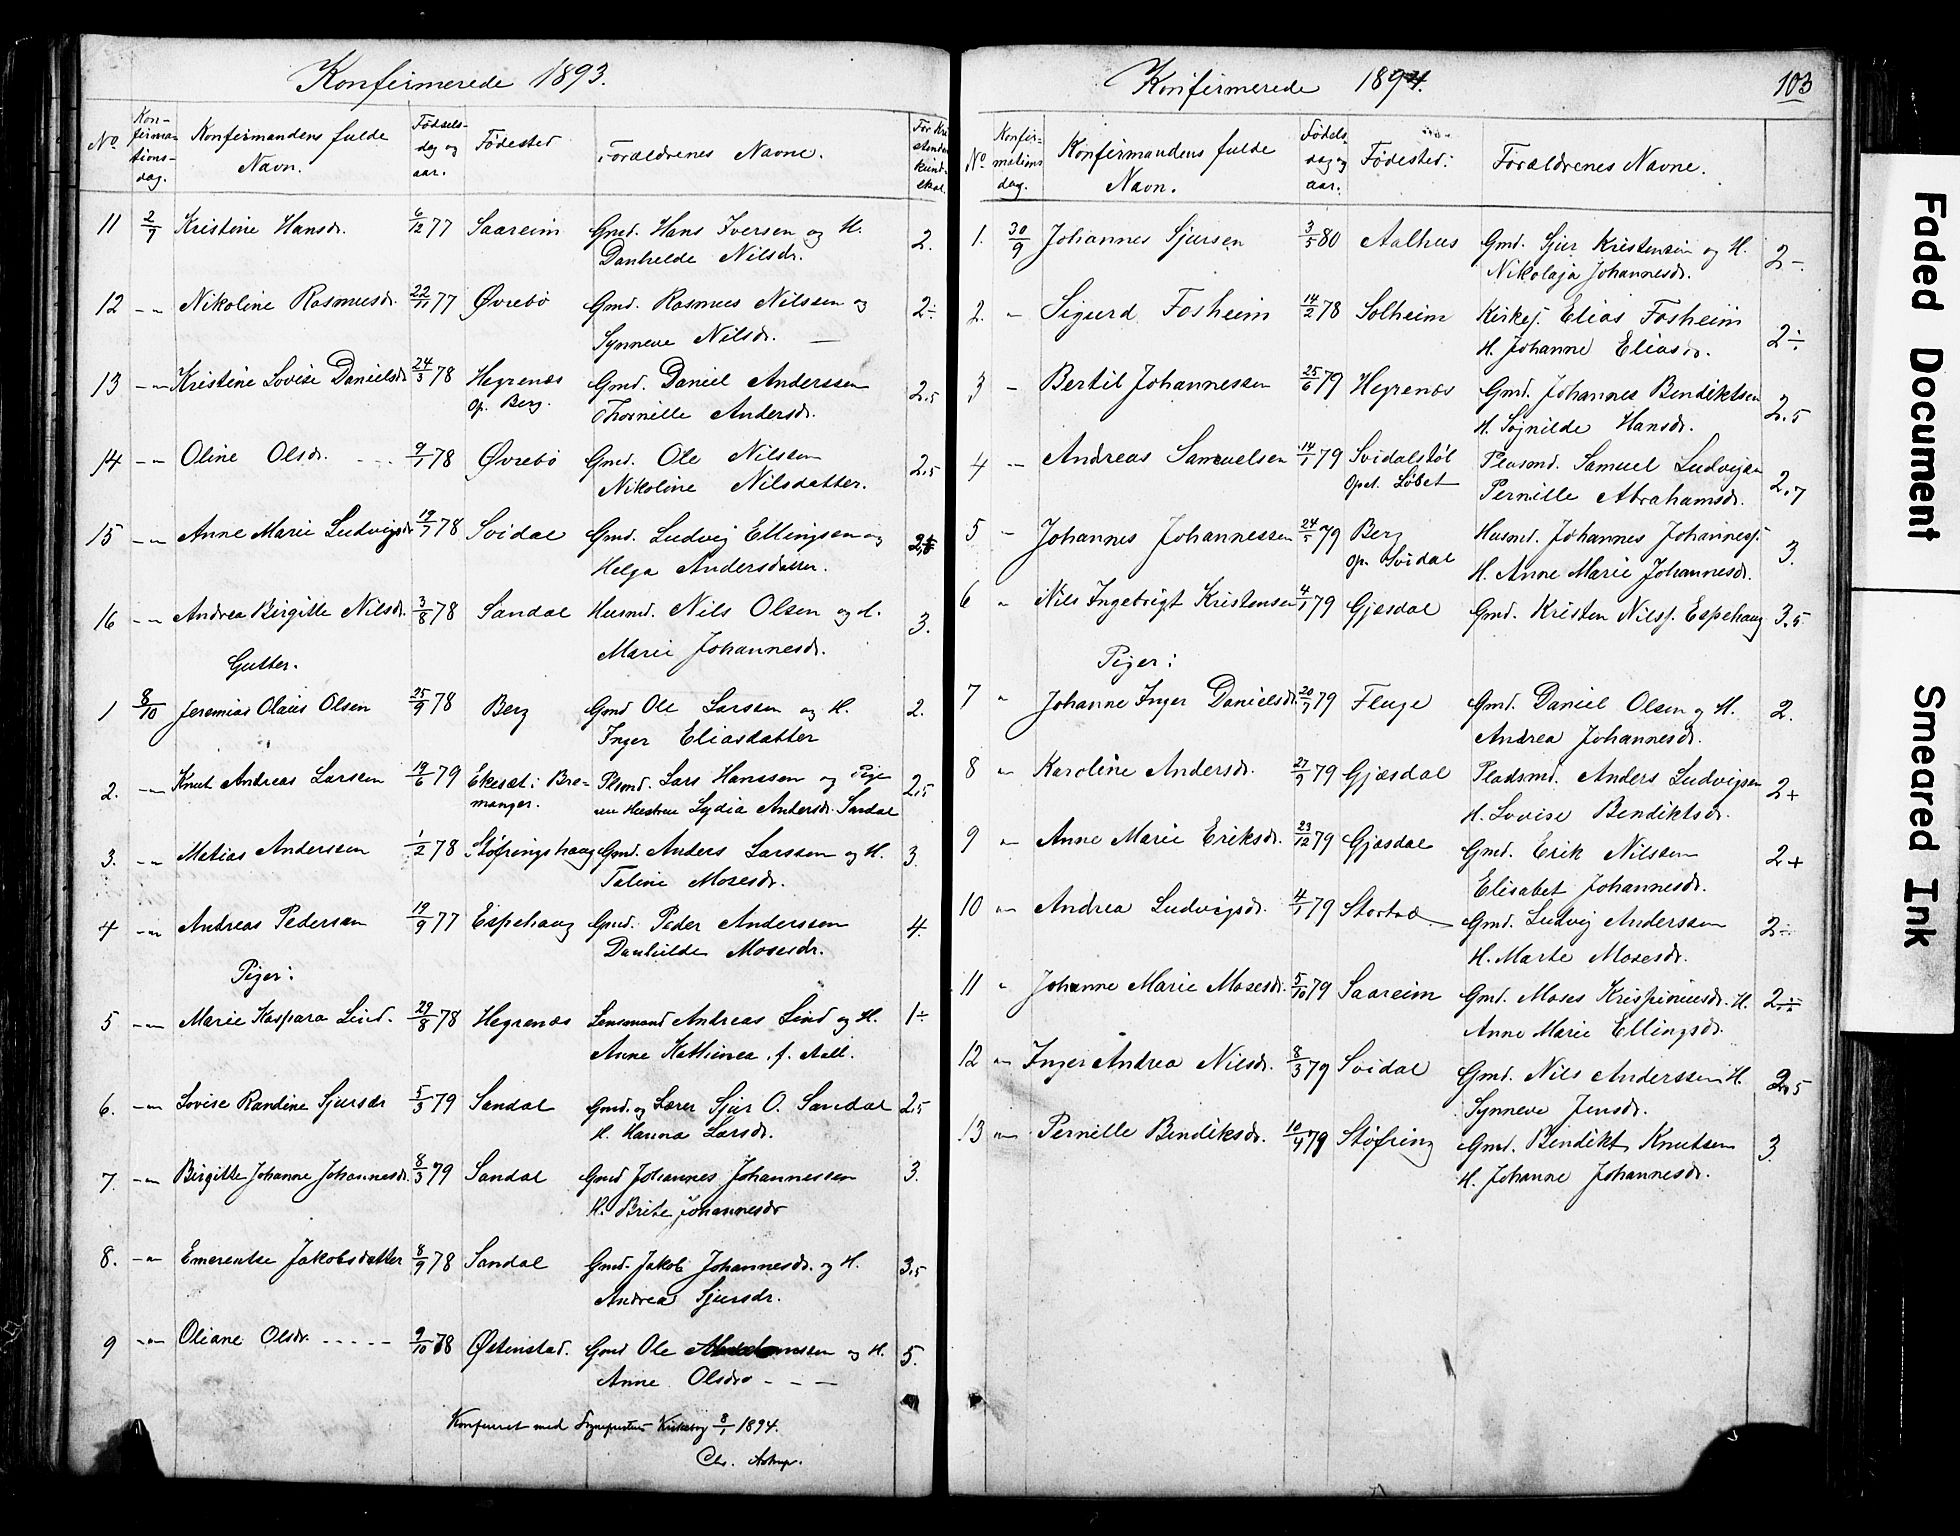 Konfirmerede 1893.
No. Kon-firma-tions-dag. Konfirmandens fulde Navn. Fødsels-dag og aar. Fødested Forældrenes Navne.
11 2/7 Kristine Hansdr. 6/12 77 Saareim Gmd. Hans Iversen og H. 2.
Danhilde Nilsdr.
12 -"- Nikoline Rasmusdr. 22/11 77 Øvrebø Gmd. Rasmus Nilssen og 2÷
Synneve Nilsdr.
13 -"- Kristine Lovise Danielsdr 24/3 78 Hegrenæs Gmd. Daniel Anderssen 2,5
Op. Berg. Thornille Andersdr.
14 -"- Oline Olsdr. 9/1 78 Øvrebø Gmd. Ole Nilssen 2,5
Nikoline Nilsdatter.
15 -"- Anne Marie Ludvigsdr 19/7 78 Svidal Gmd. Ludvig Ellingsen og
Helga Andersdatter.
16 -"- Andrea Birgitte Nilsdr. 3/8 78 Sandal Husmd. Nils Olsen og H. 3.
Marie Johannesdr.
Gutter.
1 8/10 Jeremias Olaus Olsen 25/9 78 Berg Gmd Ole Larssen og H. 2.
Inger Eliasdatter
2. -"- Knut Andreas Larsen 19/6 79 Ekesæt i Bre- Plsmd. Lars Hanssen og Pige 2,5
manger. Lydia Andersdr. Sandal
3. -"- Matias Anderssen 1/2 78 Støfringshaug Gmd. Anders Larssen og H. 3.
Taline Mosesdr.
4 -"- Andreas Pedersen 19/9 77 Espehaug Gmd. Peder Anderssen 4.
Danhilde Mosesdr.
Piger:
5 -"- Marie Kaspara Lind. 29/8 78 Hegrenæs Lensmand Andreas Lind og H. 1÷
Anne Kathinca. f. Aall.
6. -"- Lovise Randine Sjursdr 5/3 79 Sandal Gmd. og Lærer Sjur O. Sandal 2,5
H. Hanna Larsdr.
7. -"- Birgitte Johanne Johannesdr. 8/3 79 Sandal Gmd Johannes Johannessen 3.
H. Brite Johannesdr
8. -"- Emerentse Jakobsdatter 8/9 78 Sandal Gmd. Jakob Johannesdr. og H. 3,5
Andrea Sjursdr.
9 -"- Oliane Olsdr. 9/10 78 Østenstad. Gmd Ole og H. 5.
Anne Olsdr
Konfereret med Kirkebog 8/1 1894.
Chr. Astrup.
Konfirmerede 1894. 103
No. Konfir-mations dag. Konfirmandens fulde Navn. Fødels-dag og aar. Fødested: Forældrenes Navne.
1. 30/9 Johannes Sjursen 3/5 80 Aalhus Gmd. Sjur Kristensen og H. 2-.
Nikolaja Johannesdr.
2. " Sigurd Fosheim 14/2 78 Solheim Kirkesj. Elias Fosheim 2÷
H. Johanne Eliasdr.
3 - Bertil Johannessen 25/6 79 Hegrenæs Gmd. Johannes Bendiktsen 2,5
H. Søgnilde Hansdr.
4 - Andreas Samuelsen 14/1 79 Svidalstøl Plasmd. Samuel Ludvigsen 2,7
Opet. Løset Pernille Abrahamsdr.
5 - Johannes Johannessen 24/5 79 Berg Husmd. Johannes Johanness. 3.
Op. Svidal H. Anne Marie Johannesdr.
6 " Nils Ingebrigt Kristensen 4/1 79 Gjæsdal Gmd. Kristen Nilss. Espehaug 3,5
Piger:
7 " Johanne Inger Danielsdr. 20/7 79 Fluge Gmd. Daniel Olsen og H. 2.
Andrea Johannesdr.
8 " Karoline Andersdr. 27/9 79 Gjæsdal Pladsmd. Anders Ludvigsen 2+
H. Lovise Bendiktsdr.
9 " Anne Marie Eriksdr. 23/12 79 Gjæsdal Gmd. Erik Nilssen 2+
Elisabet Johannesdr.
10 " Andrea Ludvigsdr. 4/1 79 Gmd. Ludvig Anderssen 2÷
H. Marte Mosesdr.
11 " Johanne Marie Mosesdr. 5/10 79 Saareim Gmd. Moses Krispiniusdr. H. 2÷
Anne Marie Ellingsdr.
12 " Inger Andrea Nilsdr. 8/3 79 Svidal Gmd. Nils Anderssen H. 2,5
Synneve Jensdr.
13 " Pernille Bendiksdr. 10/4 79 Støfring Gmd. Bendikt Knutsen 3.
H. Johanne Johannesdr.
Faded Document
Smeared Ink